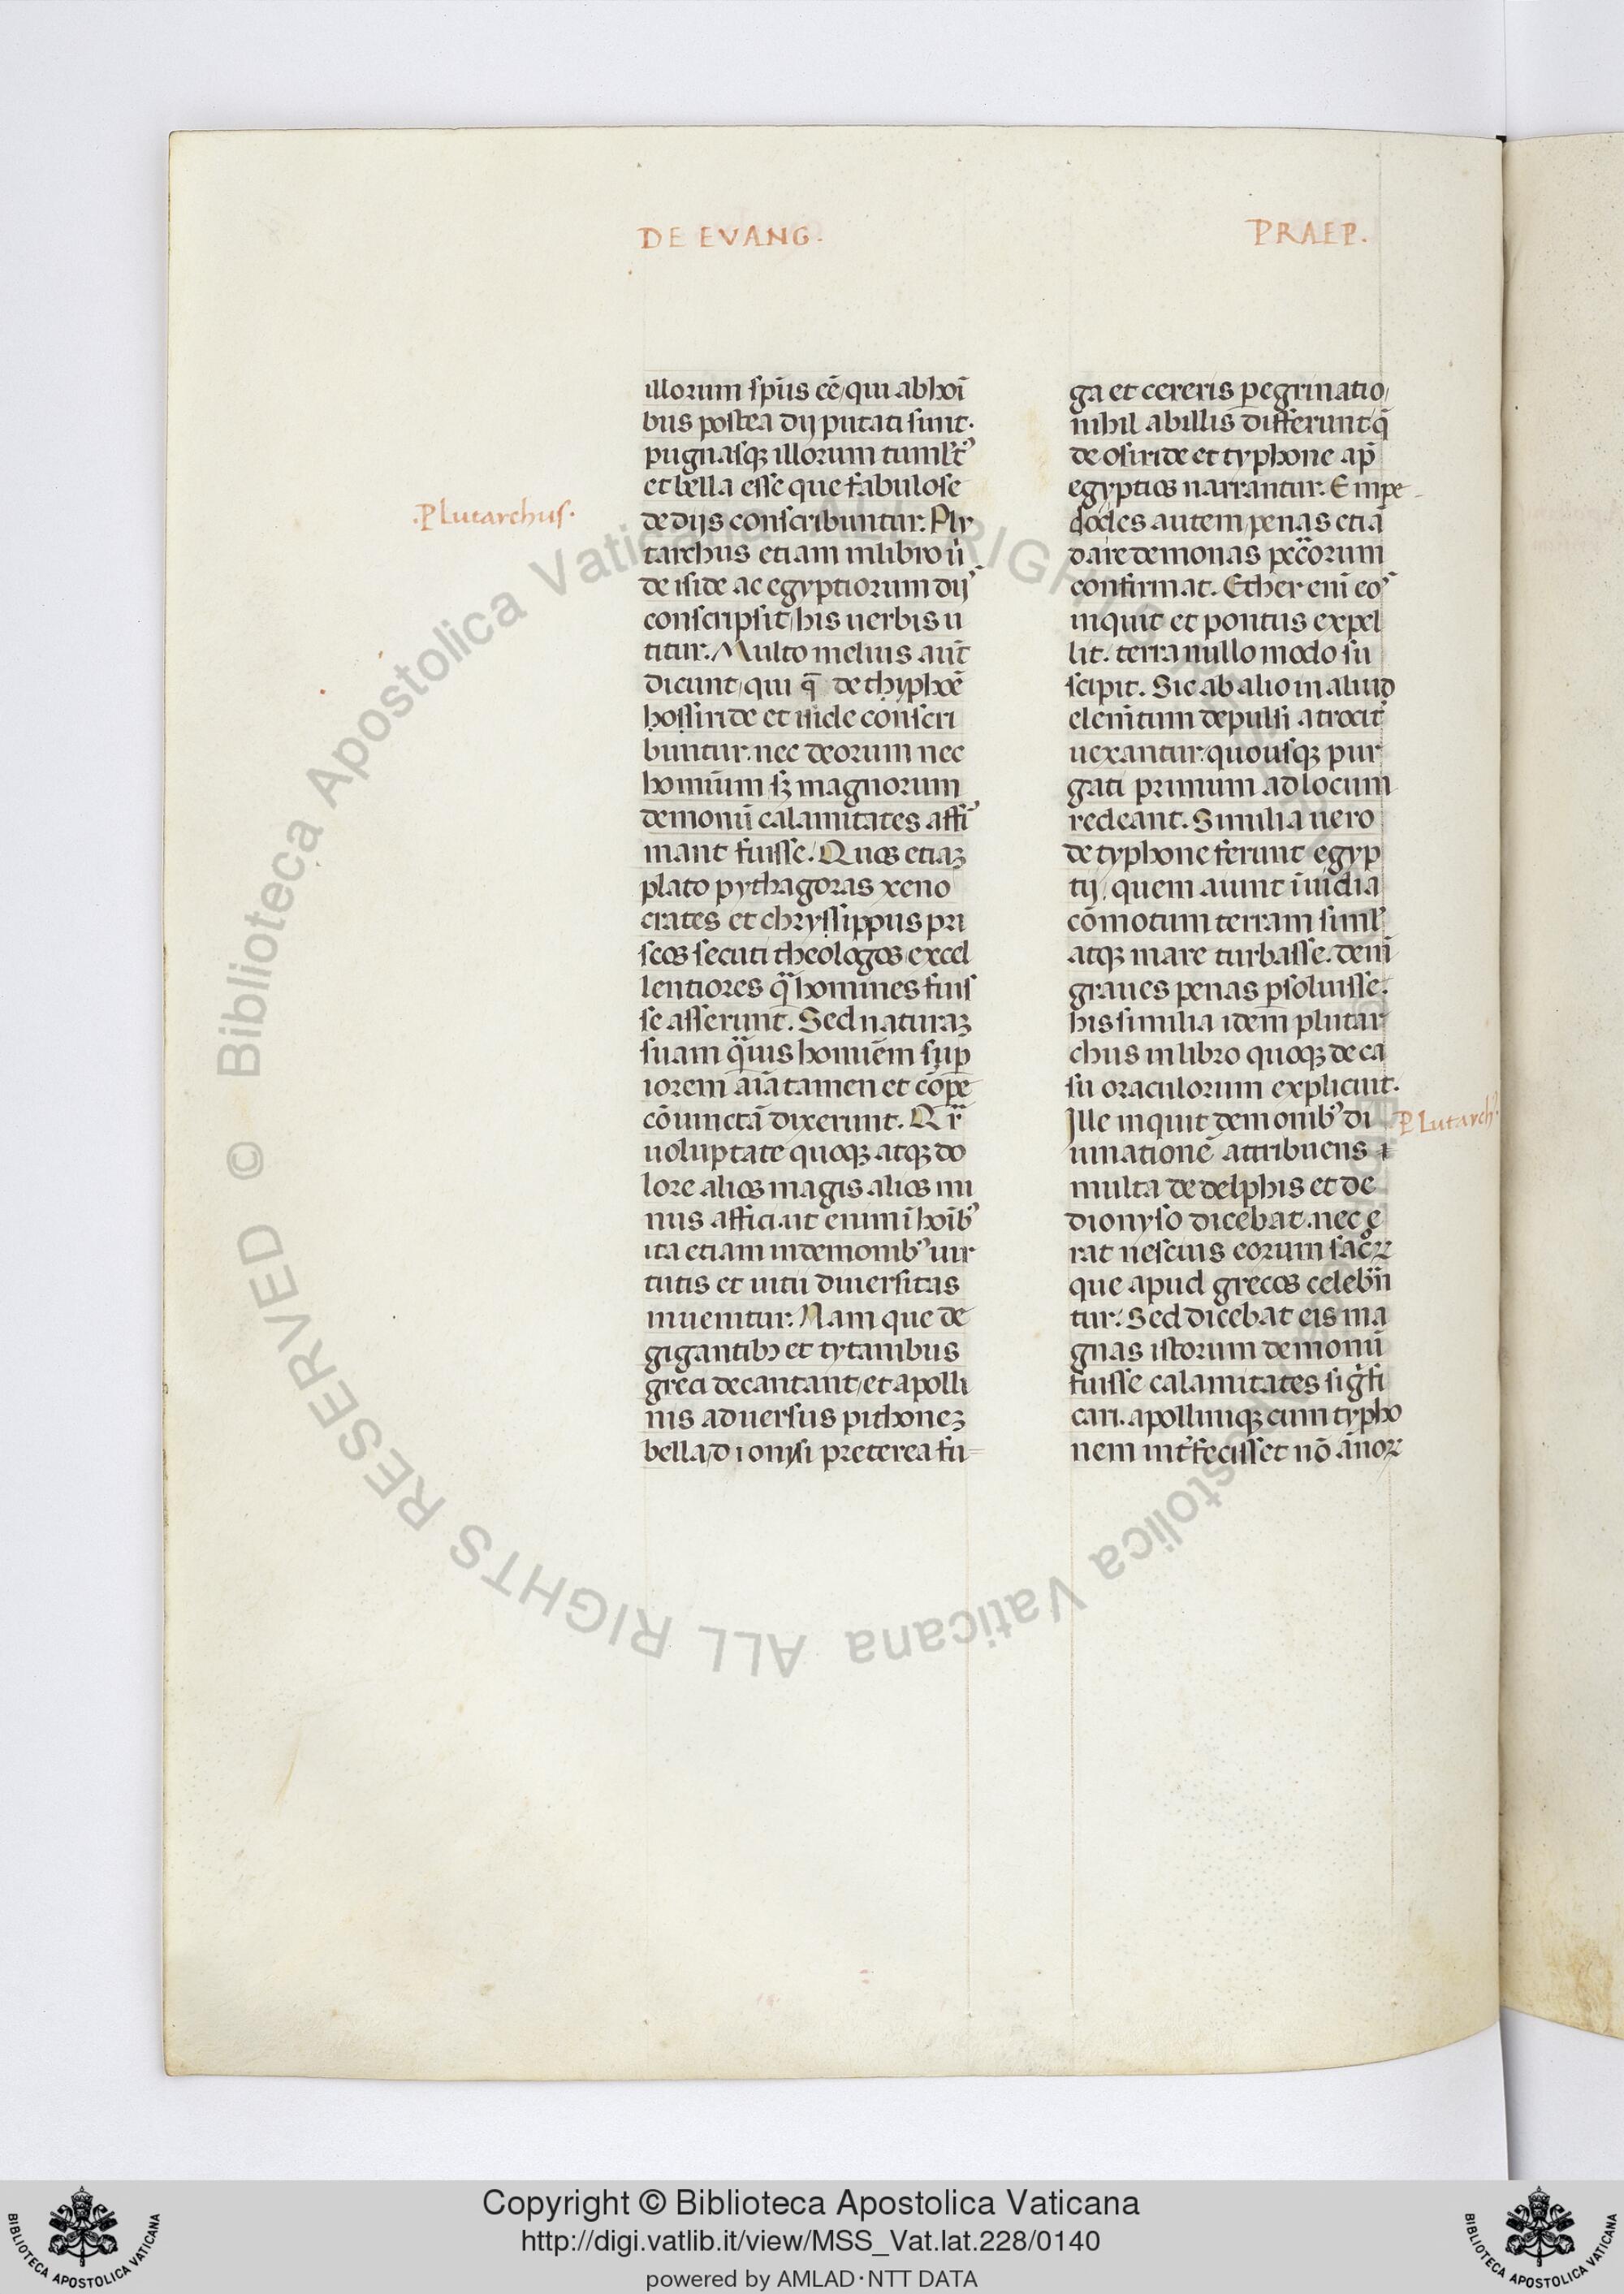 DE EVANG.
PRAEP.
illorum spūs eē/qui ab hoī
bus postea dij putati sunt.
pugnasqꝫ illorum tumłt᾽
et bella esse que fabulose
.Plutarchus.
de dijs conscribuntur. Ply
tarchus etiam in libro
de iside ac egyptiorum dij᾽
conscripsit/his uerbis u
titur. Multo melius aūt
dicunt/qui q̄ de thyphoē
hossiride et iside conscri
buntur. nec deorum nec
hominum sꝫ magnorum
demonū calamitates affi᾽
mant fuisse. Quos etiaꝫ
plato pythagoras xeno
crates et chryssippus pri
scos secuti theologos/excel
lentiores q̄ homines fuis
se asserunt. Sed naturaꝫ
suam q̄uis hominēm sup̄
iorem aīa tamen et cōpe
cōiunctā dixerunt. Qr̄
uoluptate quoqꝫ atqꝫ do
lore alios magis alios mi
nus affici.ut enim ī hoīb᾽
ita etiam in demonib᾽ uir
tutis et uitii diuersitas
inuenitur. Nam que de
gigantibꝫ et tytanibus
greci decantant/et apolli
nis aduersus pithoneꝫ
bella/dionysi preterea fu=
ga et cereris p̲egrinatio/
nihil ab illis differunt.q̄
de osiride et typhone ap̄
egyptios narrantur. Empe-
docles autem/penas etiā
dare demonas pec̄corum
confirmat. Ether eni eo᾽
inquit et pontus expel
lit. terra nullo modo su
scipit. Sic ab alio in aliud
elemītum depulsi atrocit᾽
uexantur.quousqꝫ pur
gati primum ad locum
redeant. Similia uero
de typhone ferunt egyp
tij. quem aiunt īuidia
cōmotum terram simł᾽
atqꝫ mare turbasse. dem̄
graues penas p̲soluisse.
his similia idem plutar
chus in libro quoqꝫ de ca
su oraculorum explicuit.
Ille inquit demonib᾽ di
Plutarch᾽.
uinationē attribuens
multa de delphis et de
dionyso dicebat .nec e
rat nescius eorum sacꝝ
que apud grecos celebn̄
tur. Sed dicebat eis ma
gnas istorum demonū
fuisse calamitates sigfi
cari. apollinqꝫ cum typho
nem int᾽fecisset nō ānoꝝ
© Biblioteca Apostolica Vaticana ALL RIGHTS RESERVED
Copyright © Biblioteca Apostolica Vaticana
http://digi.vatlib.it/view/MSS_Vat.lat.228/0140
powered by AMLAD·NTT DATA
BIBLIOTECA APOSTOLICA VATICANA
BIBLIOTECA APOSTOLICA VATICANA